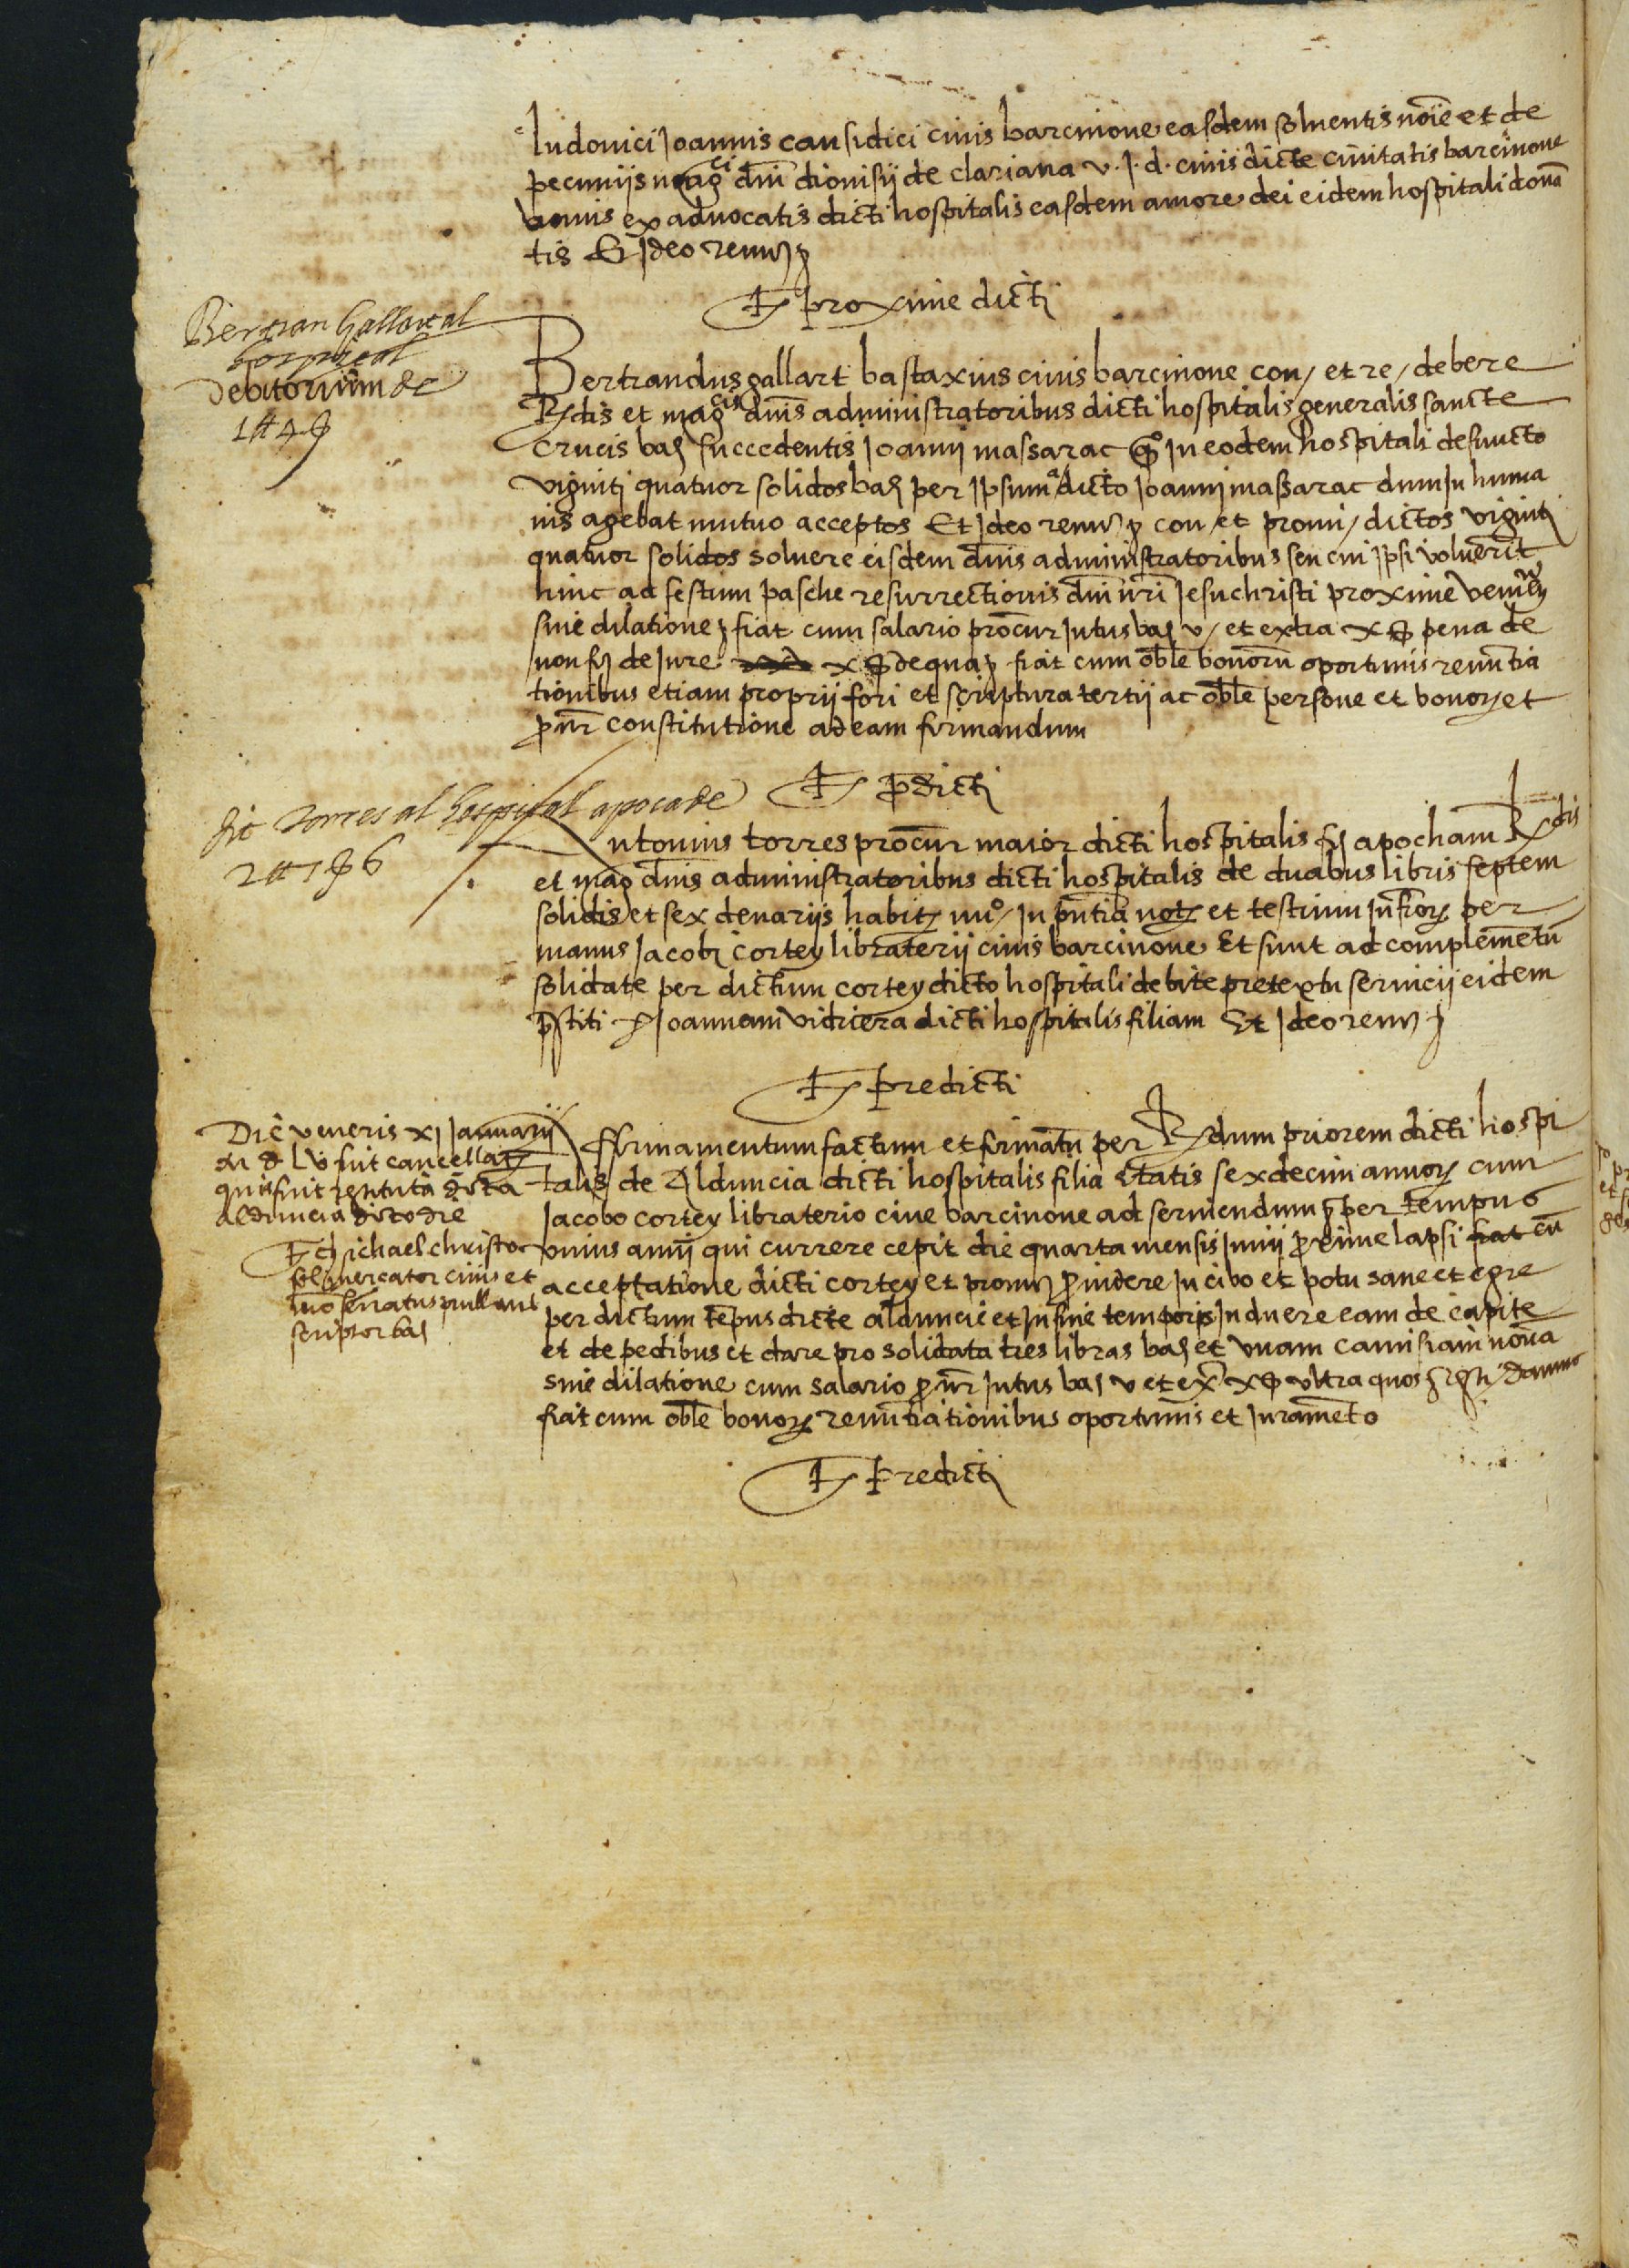 ludovici Joannis causidici civis barcinone easdem solventis noīe et de
pecuniis mag^ci dm̄ dionisii de clariana v. J. d. civis dicte civitatis barcinone
unius ex advocatis dicti hospitalis easdem amore dei eidem hospitali dona
tis Et Jdeo renu
Ts proxime dicti
Bertran Gallart al
hospital
debitorium de
1 ℔ 4 s
Bertrandus gallart bastaxius civis barcinone con/ et re/ debere
R^dis et mag^cis dnīs administratoribus dicti hospitalis generalis sancte
crucis bar succedentis Joanni massarac q° Jn eodem hospitali defuncto
viginti quatuor solidos bar per Jpsum a dicto Joanni massarac dum Jn huma
nis agebat mutuo acceptos Et Jdeo renu con/ et promi/ dictos viginti
quatuor solidos solvere eisdem dnīs administratoribus seu cui Jpsi voluerit
hinc ad festum pasche resurrectionis dnī nrī Jesuchristi proxime ventur
sine dilatione fiat cum salario procur Jntus bar v/ et extra x s pena de
non fir de Jure x s de qua fiat cum oble bonorū oportunis renūtia
tionibus etiam proprii fori et scriptura tertii ac oble persone et bonor et
pcur constitutione ad eam firmandum
Ts p̄dicti
Ant torres al hospital apoca de
2 ℔ 7 s 6
Antonius torres procur maior dicti hospitalis fir apocham R^dis
et mag dnīs administratoribus dicti hospitalis de duabus libris septem
solidis et sex denariis habit nu°/ Jn pn̄tia not et testium Jnfror per
manus Jacobi cortey libraterii civis barcinone Et sunt ad complemētū
solidate per dictum cortey dicto hospitali debite pretextu servicii eidem
p̄stiti p Joannam vidriera dicti hospitalis filiam Et Jdeo renu
Ts predicti
Die veneris xj Januarii
M D Lv fuit cancellat
quia fuit restituta dicta
Alduncia dicto die
Ts Michael christo
mercator civis et
scriptor bar
Afirmamentum factum et firmatū per R^dum priorem dicti hospi
talis de Alduncia dicti hospitalis filia etatis sexdecim annor cum
Jacobo cortey libraterio cive barcinone ad serviendum per tempus
unius anni qui currere cepit die quarta mensis Junii proxime lapsi fiat cū
acceptatione dicti cortey et promi providere Jn cibo et potu sane et egre
per dictum tēpus dicte alduncie et Jn fine temporis Jnduere eam de capite
et de pedibus et dare pro solidata tres libras bar et vnam camisiam nova
sine dilatione cum salario pcur Jntus bar v et ex^a x s ultra quos restit/ damno
fiat cum oble bonor renūtiationibus oportunis et Juramēto
Ts Predicti